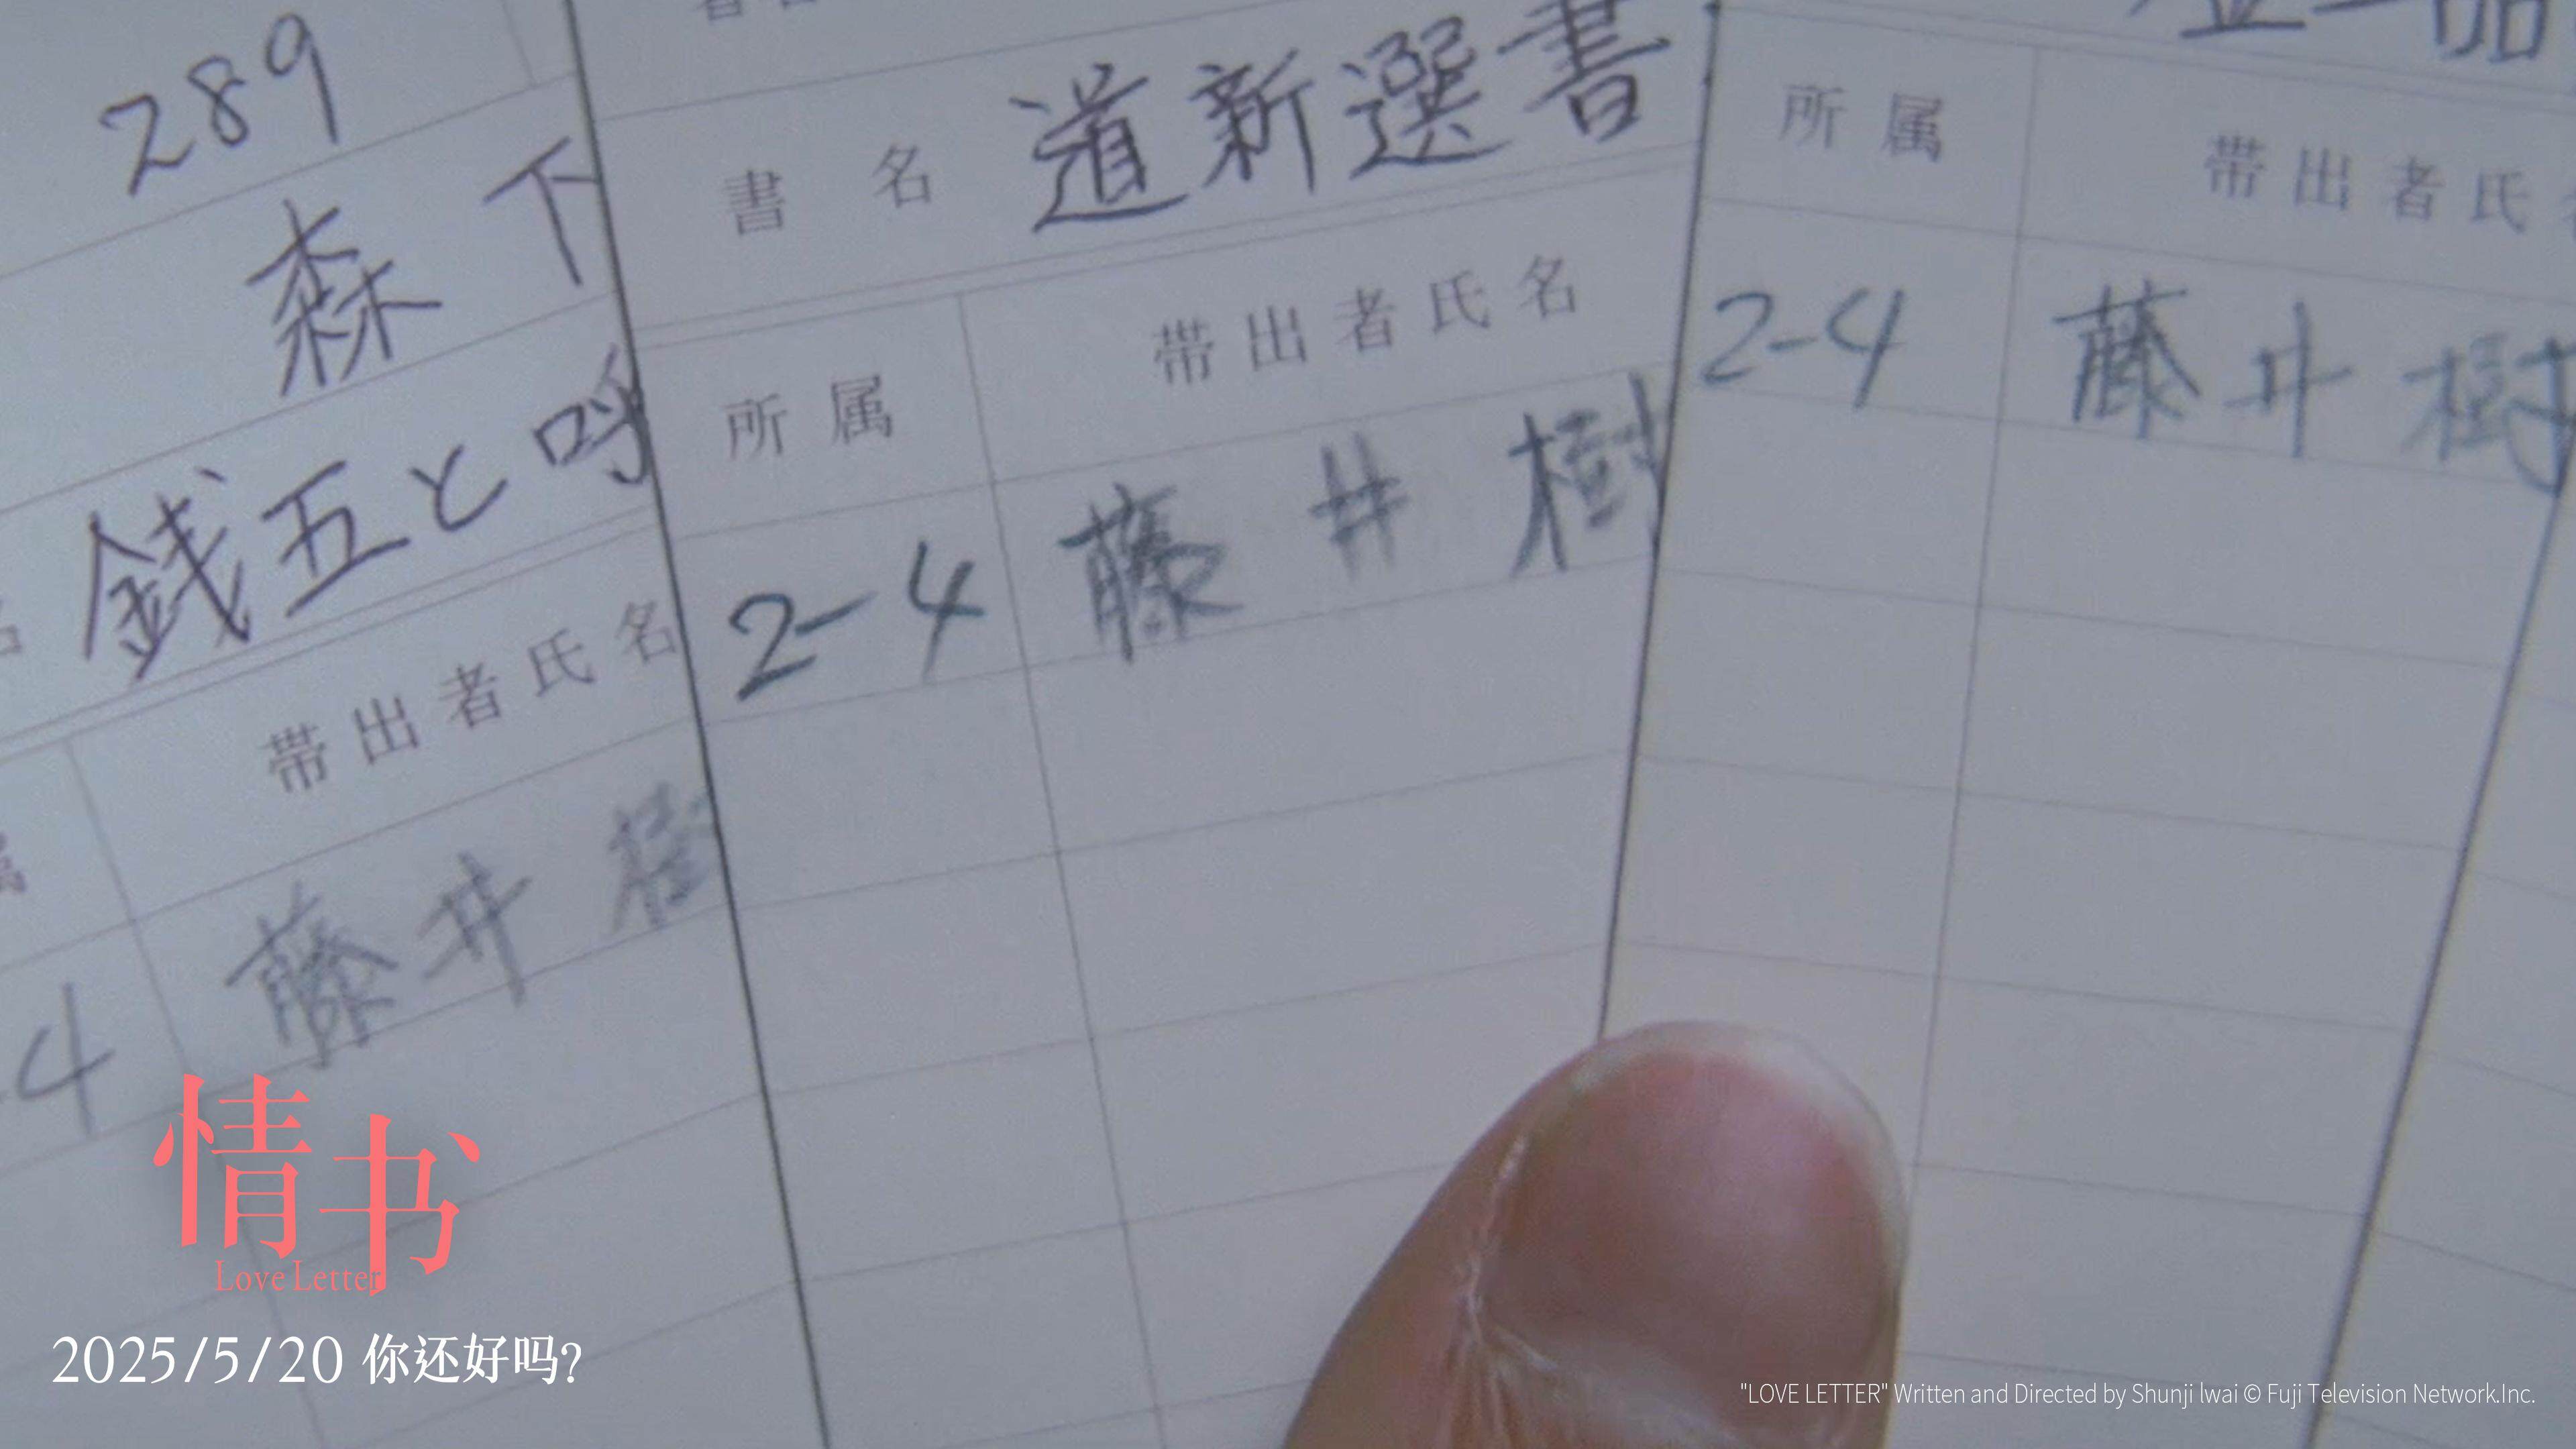 289
森下
銭五と呼
帯出者氏名
4 藤井樹
書名 道新選書
所属 帯出者氏名
2-4 藤井樹
所属 帯出者氏
2-4 藤井樹
情书
Love Letter
2025/5/20 你还好吗?
"LOVE LETTER" Written and Directed by Shunji Iwai © Fuji Television Network.Inc.